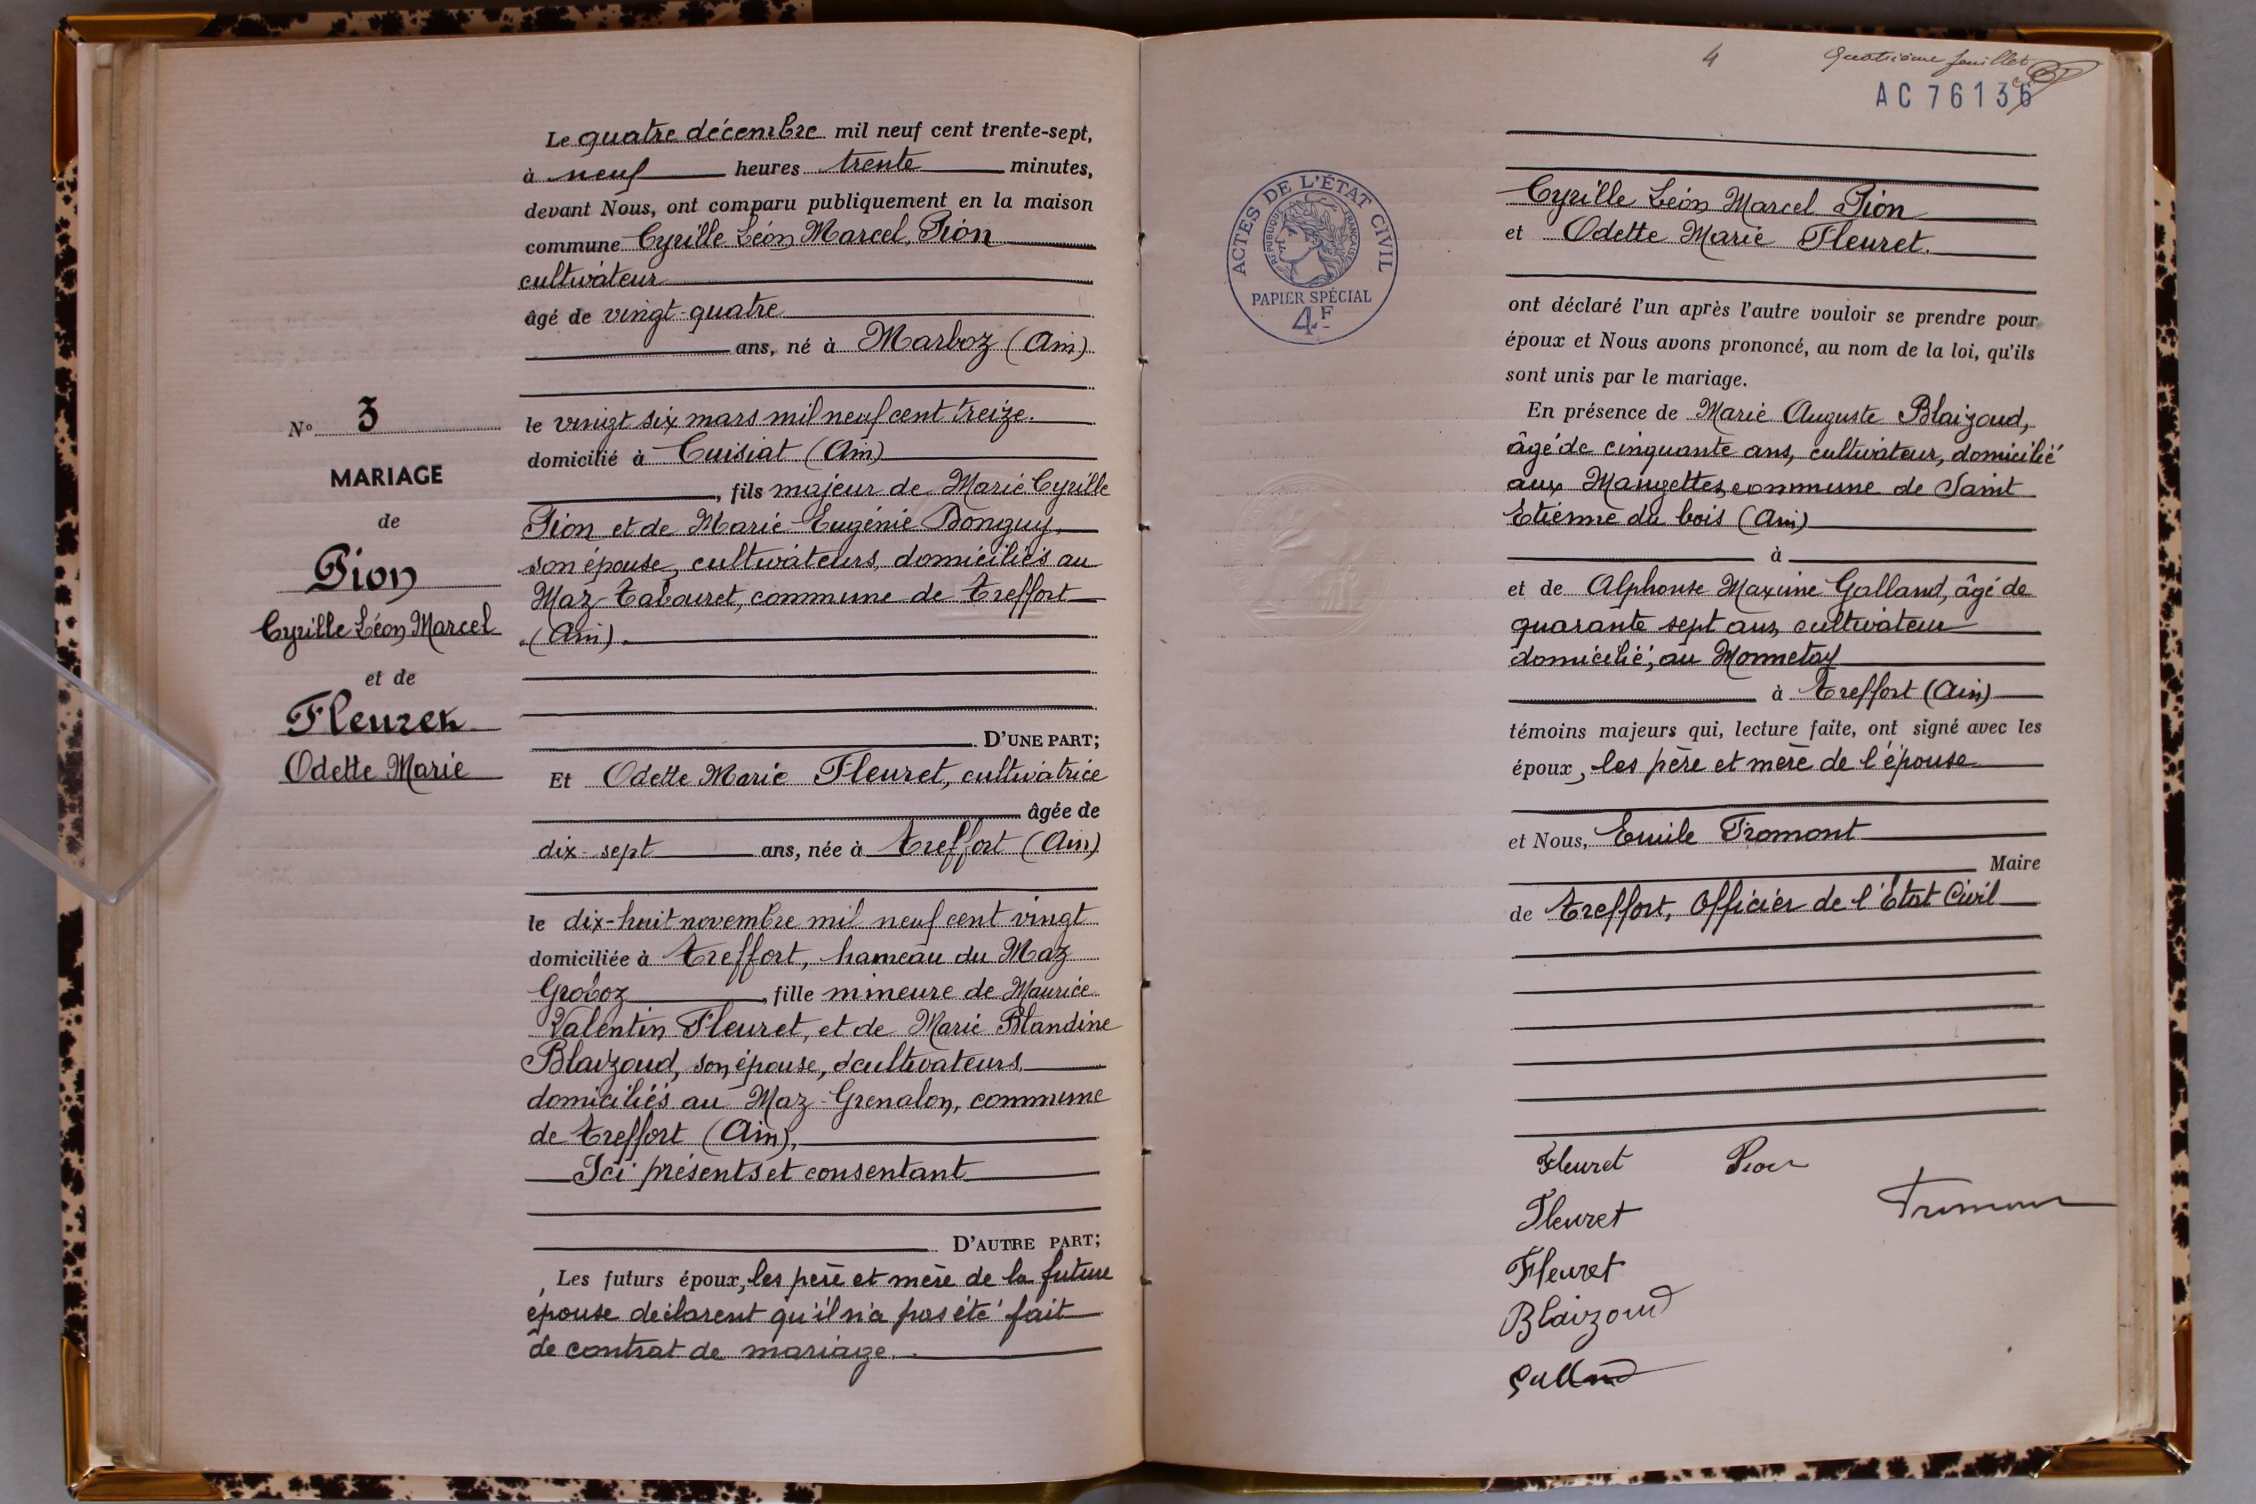 Le quatre décembre mil neuf cent trente-sept,
à neuf heures trente minutes,
devant Nous, ont comparu publiquement en la maison
commune Cyrille Léon Marcel Pion
cultivateur
âgé de vingt-quatre
ans, né à Marboz (Ain)
le vingt six mars mil neuf cent treize.
domicilié à Cuisiat (Ain)
, fils majeur de Marie Cyrille
Pion et de Marie Eugénie Donguy,
son épouse, cultivateurs, domiciliés au
Maz-Tabouret, commune de Treffort
(Ain).
D'UNE PART;
Et Odette Marie Fleuret, cultivatrice
âgée de
dix-sept ans, née à Treffort (Ain)
le dix-huit novembre mil neuf cent vingt
domiciliée à Treffort, hameau du Maz
Groboz, fille mineure de Maurice
Valentin Fleuret, et de Marie Blandine
Blaizoud, son épouse, cultivateurs
domiciliés au Maz-Grenalon, commune
de Treffort (Ain),
Ici présents et consentant
D'AUTRE PART;
Les futurs époux, les père et mère de la future
épouse déclarent qu'il n'a pas été fait
de contrat de mariage.
N° 3
MARIAGE
de
Pion
Cyrille Léon Marcel
et de
Fleuret
Odette Marie
4 Quatrième feuillet
AC 76136
ACTES DE L'ÉTAT CIVIL
RÉPUBLIQUE FRANÇAISE
PAPIER SPÉCIAL
4F
Cyrille Léon Marcel Pion
et Odette Marie Fleuret.
ont déclaré l'un après l'autre vouloir se prendre pour
époux et Nous avons prononcé, au nom de la loi, qu'ils
sont unis par le mariage.
En présence de Marie Auguste Blaizoud,
âgé de cinquante ans, cultivateur, domicilié
aux Mangettes, commune de Saint
Etienne du bois (Ain)
à
et de Alphonse Maxime Galland, âgé de
quarante sept ans, cultivateur
domicilié, au Monnetay
à Treffort (Ain)
témoins majeurs qui, lecture faite, ont signé avec les
époux, les père et mère de l'épouse
et Nous, Emile Fromont
Maire
de Treffort, Officier de l'État Civil
Fleuret Pion
Fromont
Fleuret
Fleuret
Blaizoud
Galland